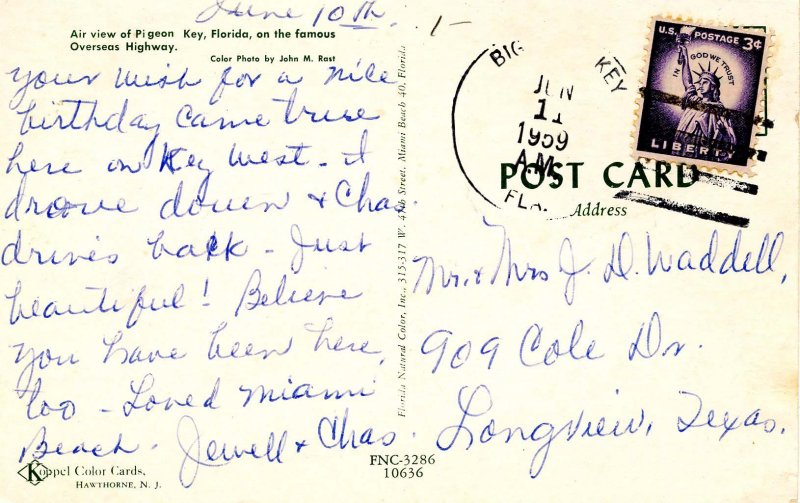 June 10th.
1-
Air view of Pigeon Key, Florida, on the famous
Overseas Highway.
Color Photo by John M. Rast
Your wish for a nice
birthday came true
here on Key West - I
drove down & Chas.
drives back - Just
beautiful! Believe
you have been here,
too - Loved Miami
Beach. Jewell & Chas.
Koppel Color Cards,
HAWTHORNE, N. J.
Florida Natural Color, Inc., 315-317 W. 47th Street, Miami Beach 40, Florida
FNC-3286
10636
BIG KEY
JUN
11
1959
A.M.
FLA.
U.S. POSTAGE 3¢
IN GOD WE TRUST
LIBERTY
POST CARD
Address
Mr. & Mrs J. D. Waddell,
909 Cole Dr.
Longview, Texas.